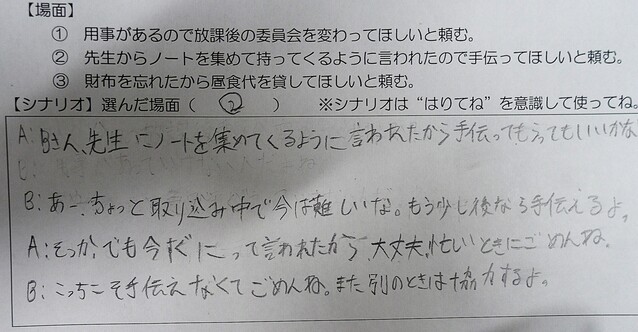 【場面】
① 用事があるので放課後の委員会を変わってほしいと頼む。
② 先生からノートを集めて持ってくるように言われたので手伝ってほしいと頼む。
③ 財布を忘れたから昼食代を貸してほしいと頼む。
【シナリオ】選んだ場面（ ② ） ※シナリオは“はりてね”を意識して使ってね。
A：Bさん、先生にノートを集めてくるように言われたから手伝ってもらってもいいかな
B：あー、ちょっと取り込み中で今は難しいな。もう少し後なら手伝えるよ。
A：そっか、でも今すぐにって言われたから、大丈夫、忙しいときにごめんね。
B：こっちこそ手伝えなくてごめんね。また別のときは協力するよ。